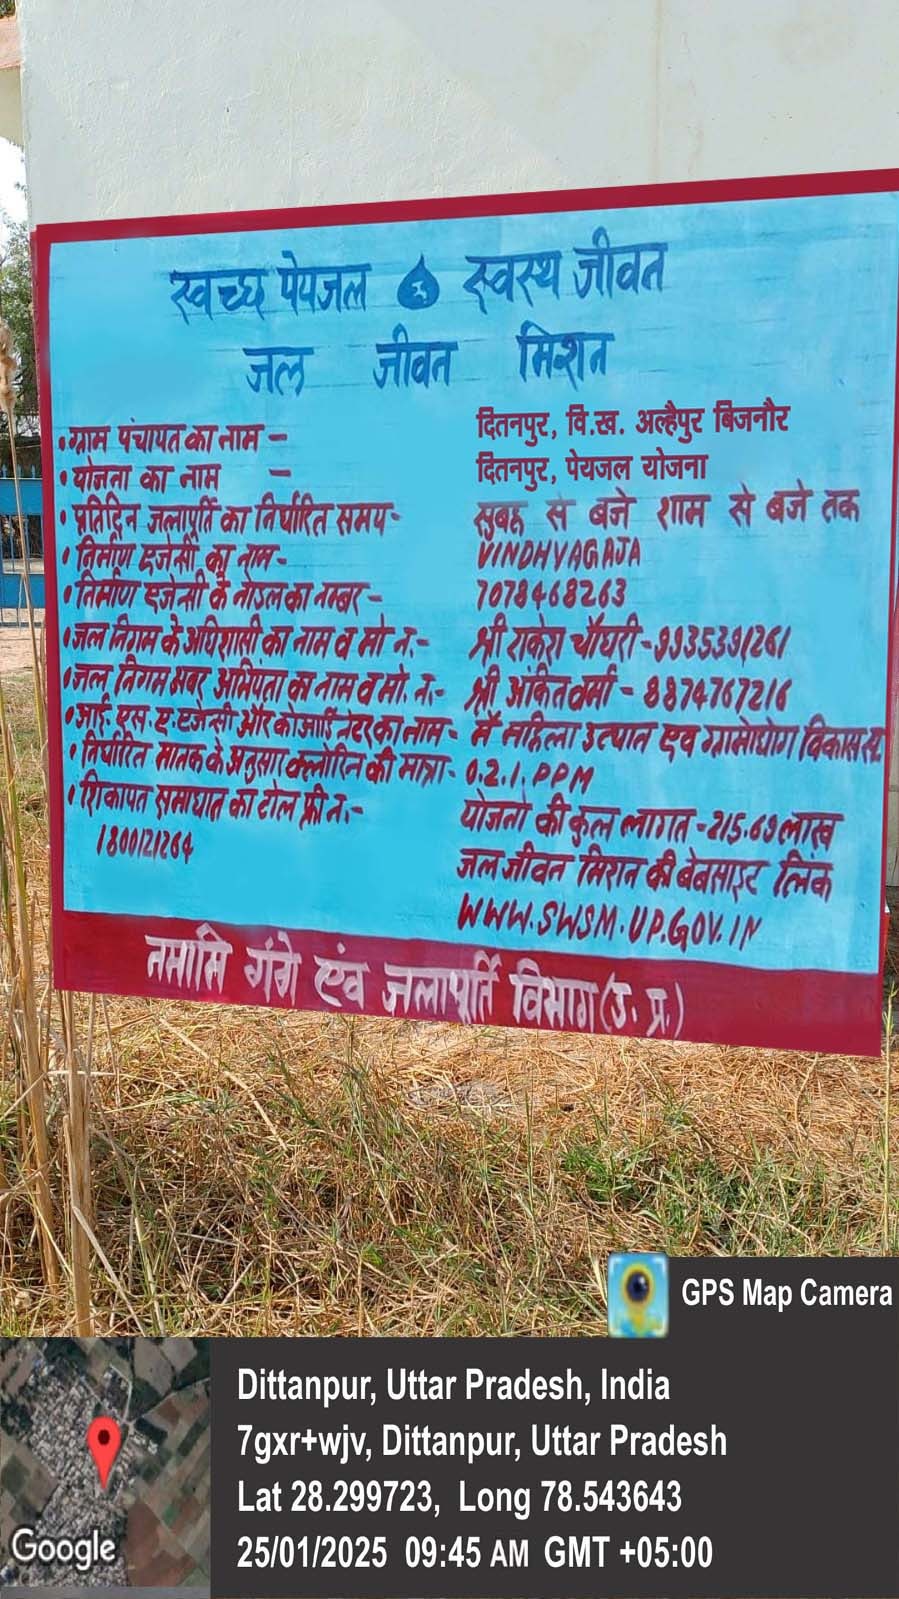 स्वच्छ पेयजल स्वस्थ जीवन
जल जीवन मिशन
• ग्राम पंचायत का नाम – दितनपुर, वि.ख. अल्हैपुर बिजनौर
• योजना का नाम – दितनपुर, पेयजल योजना
• प्रतिदिन जलापूर्ति का निर्धारित समय- सुबह से बजे शाम से बजे तक
• निर्माण एजेन्सी का नाम- VINDHYAGAJA
• निर्माण एजेन्सी के नोडल का नम्बर– 7078468263
• जल निगम के अधिशासी का नाम व मो न.- श्री राकेश चौधरी-9935391261
• जल निगम अवर अभियंता का नाम व मो. न.- श्री अंकित वर्मा- 8874767216
• आई. एस. ए. एजेन्सी और कोआर्डिनेटर का नाम- मै महिला उत्थान एव ग्रामोद्योग विकास स.
• निर्धारित मानक के अनुसार क्लोरिन की मात्रा- 0.2.1.PPM
• शिकायत समाधान का टोल फ्री न.-
1800121264
योजना की कुल लागत-215.69 लाख
जल जीवन मिशन की बेबसाइट लिंक
WWW.SWSM.UP.GOV.IN
नमामि गंगे एंव जलापूर्ति विभाग(उ. प्र.)
GPS Map Camera
Dittanpur, Uttar Pradesh, India
7gxr+wjv, Dittanpur, Uttar Pradesh
Lat 28.299723, Long 78.543643
25/01/2025 09:45 AM GMT +05:00
Google